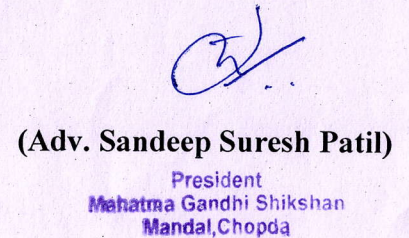 (Adv. Sandeep Suresh Patil)
President
Mahatma Gandhi Shikshan
Mandal,Chopda